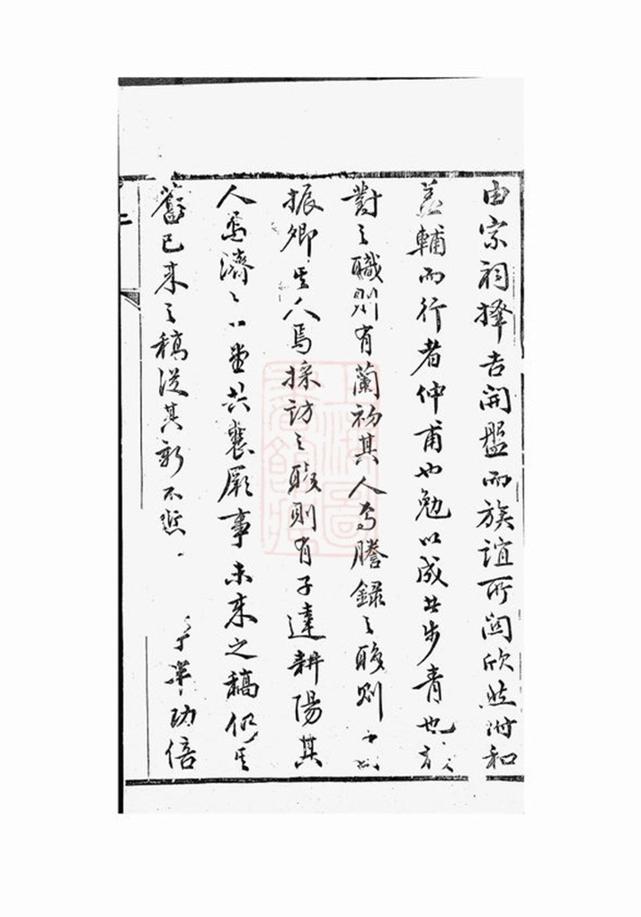 由宗祠擇吉開盤而族誼所関欣然附和
善輔而行者仲甫也勉以成者步青也
對之職則有蘭初其人焉謄錄之職則
振卿其人焉採訪之職則有子達耕陽其
人焉濟之以堂共襄厥事未來之稿仍其
舊已來之稿從其新不愆
事半功倍